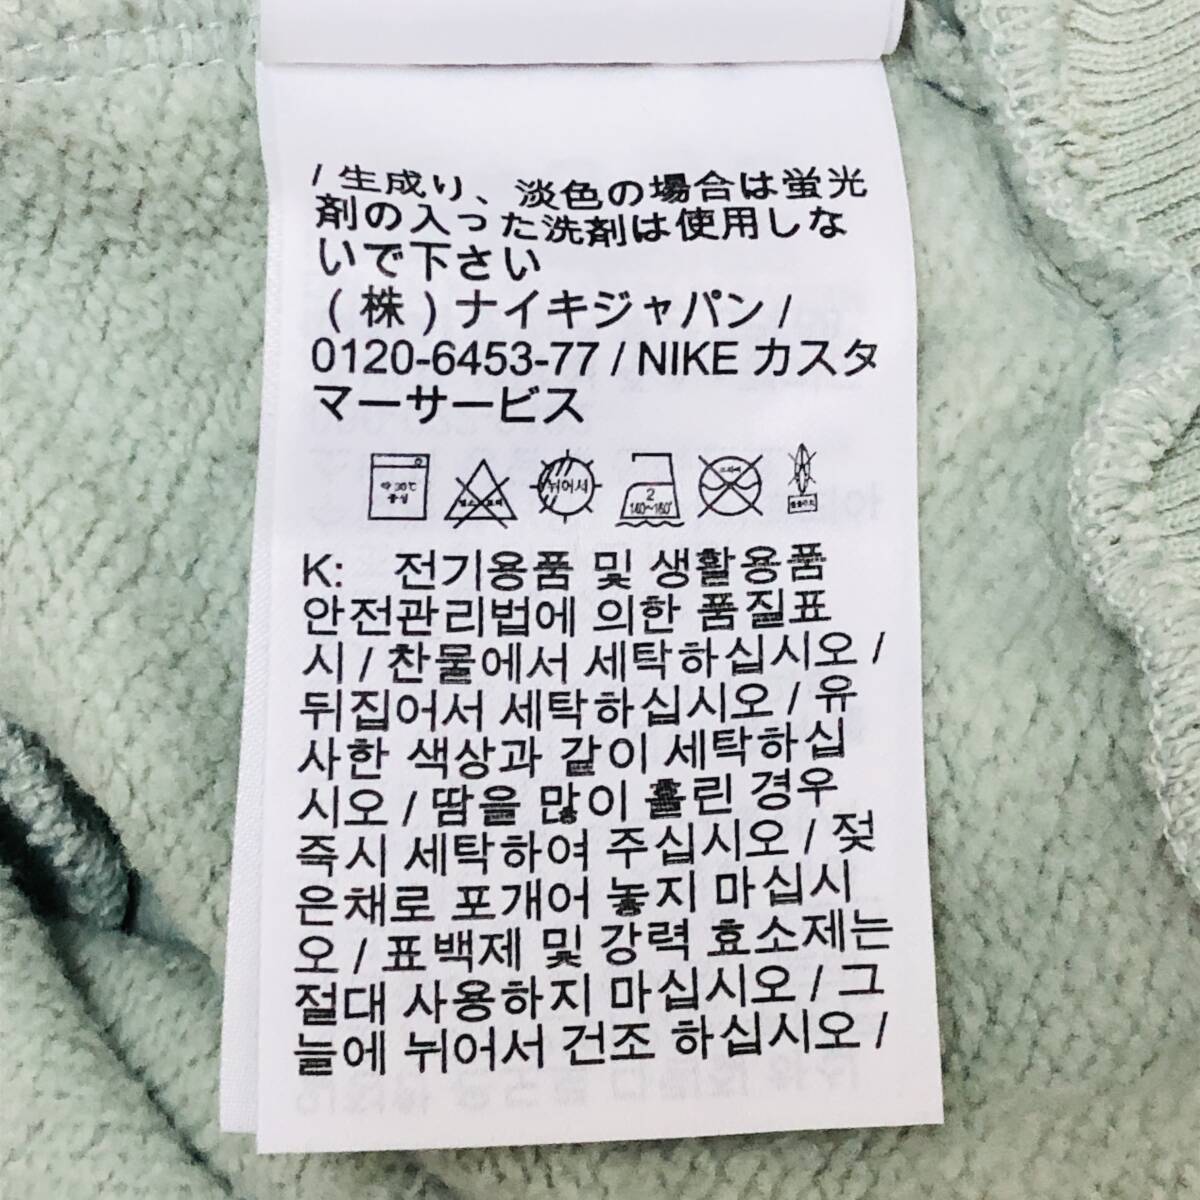 / 生成り、淡色の場合は蛍光
剤の入った洗剤は使用しな
いで下さい
(株)ナイキジャパン /
0120-6453-77 / NIKE カスタ
マーサービス
30℃
중성
뉘어서
2
140~160℃
드라이
K: 전기용품 및 생활용품
안전관리법에 의한 품질표
시 / 찬물에서 세탁하십시오 /
뒤집어서 세탁하십시오 / 유
사한 색상과 같이 세탁하십
시오 / 땀을 많이 흘린 경우
즉시 세탁하여 주십시오 / 젖
은채로 포개어 놓지 마십시
오 / 표백제 및 강력 효소제는
절대 사용하지 마십시오 / 그
늘에 뉘어서 건조 하십시오 /